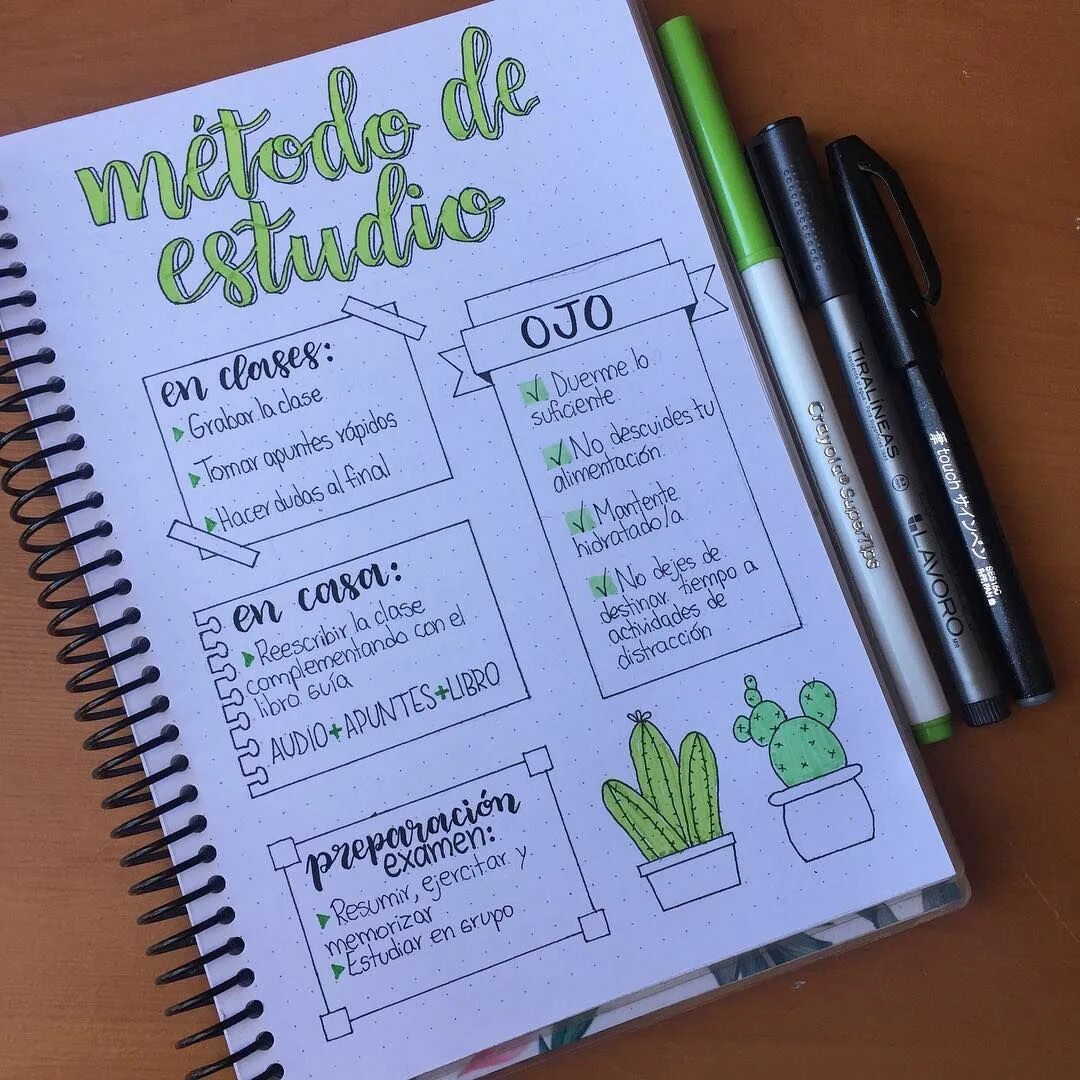 método de
estudio
en clases:
Grabar la clase
Tomar apuntes rápidos
Hacer dudas al final
en casa:
Reescribir la clase
complementando con el
libro guía
AUDIO+APUNTES+LIBRO
preparación
examen:
Resumir, ejercitar y
memorizar
Estudiar en grupo
OJO
Duerme lo
suficiente
No descuides tu
alimentación
Mantente
hidratado/a
No dejes de
destinar tiempo a
actividades de
distracción
Crayola SuperTips
TIRALÍNEAS
LAVORO
touch サインペン
SES15C